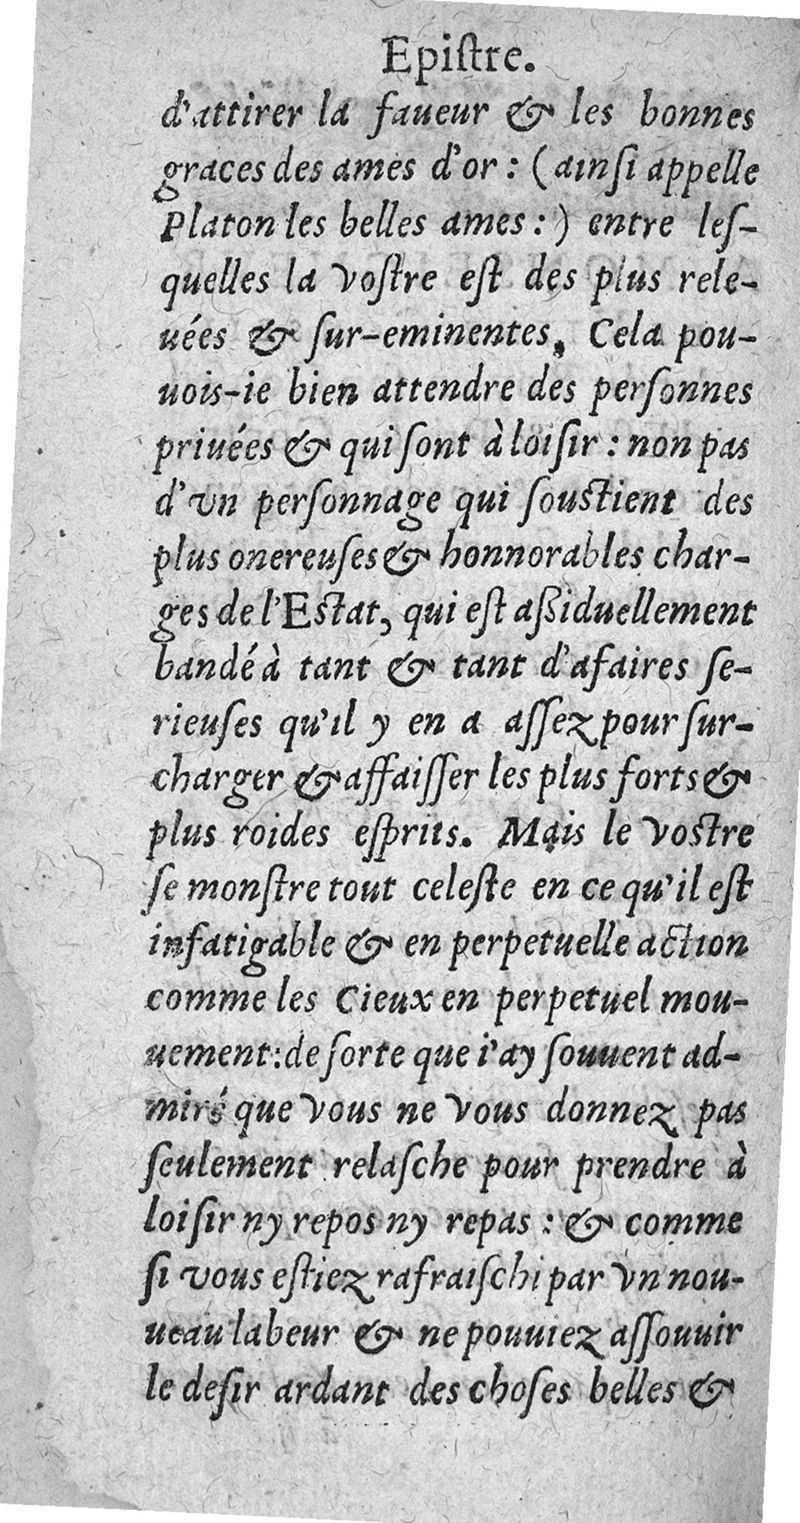 Epiſtre.
d'attirer la faueur & les bonnes
graces des ames d'or : (ainſi appelle
Platon les belles ames : ) entre leſ-
quelles la voſtre eſt des plus rele-
uées & ſur-eminentes, Cela pou-
uois-ie bien attendre des perſonnes
priuées & qui ſont à loiſir : non pas
d'vn perſonnage qui ſouſtient des
plus onereuſes & honnorables char-
ges de l'Eſtat, qui eſt aßiduellement
bandé à tant & tant d'afaires ſe-
rieuſes qu'il y en a aſſez pour ſur-
charger & affaiſſer les plus forts &
plus roides eſprits. Mais le voſtre
ſe monſtre tout celeſte en ce qu'il eſt
infatigable & en perpetuelle action
comme les Cieux en perpetuel mou-
uement : de ſorte que i'ay ſouuent ad-
miré que vous ne vous donnez pas
ſeulement relaſche pour prendre à
loiſir ny repos ny repas : & comme
ſi vous eſtiez rafraiſchi par vn nou-
ueau labeur & ne pouuiez aſſouuir
le deſir ardant des choſes belles &